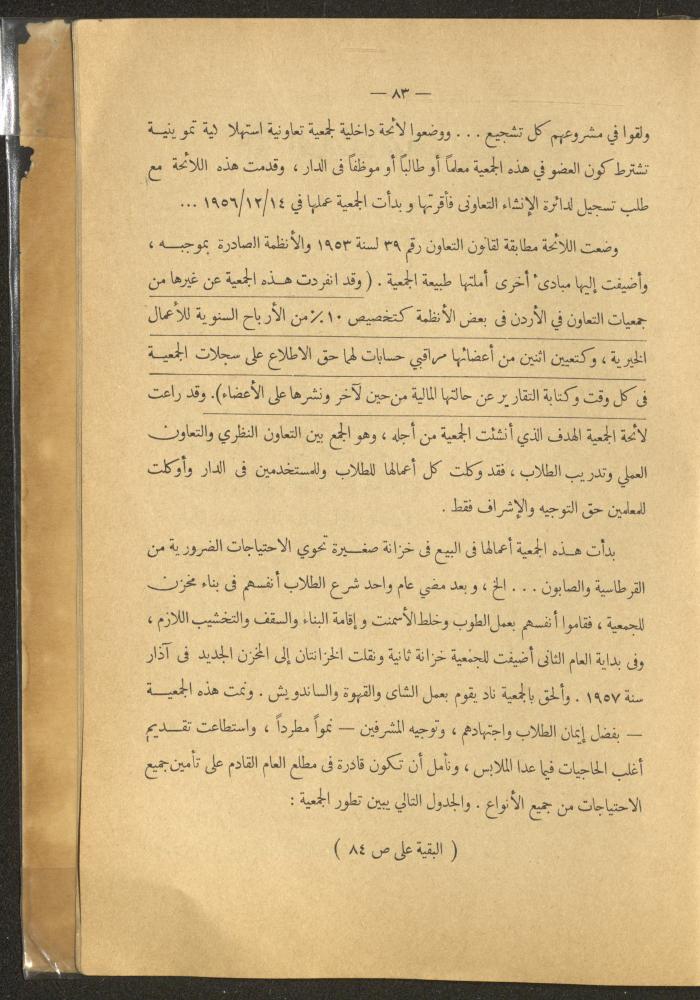 — ٨٣ —
ولقوا في مشروعهم كل تشجيع . . . ووضعوا لائحة داخلية لجمعية تعاونية استهلا كية تمو ينيــة
تشترط كون العضو في هذه الجمعية معلماً أو طالباً أو موظفاً فى الدار ، وقدمت هذه اللائحة مع
طلب تسجيل لدائرة الإنشاء التعاونى فأقرتها و بدأت الجمعية عملها في ١٩٥٦/١٢/١٤ ...
وضعت اللائحة مطابقة لقانون التعاون رقم ٣٩ لسنة ١٩٥٣ والأنظمة الصادرة بموجبــه ،
وأضيفت إليها مبادىء أخرى أملتها طبيعة الجمعية . ( وقد انفردت هــذه الجمعية عن غيرها من
جمعيات التعاون في الأردن فى بعض الأنظمة كتخصيص ١٠ ٪ من الأرباح السنوية للأعمال
الخيرية ، وكتعيين اثنين من أعضائها مراقبي حسابات لهما حق الاطلاع على سجلات الجمعيــة
فى كل وقت وكتابة التقارير عن حالتها المالية من حين لآخر ونشرها على الأعضاء). وقد راعت
لائحة الجمعية الهدف الذي أنشئت الجمعية من أجله ، وهو الجمع بين التعاون النظري والتعاون
العملي وتدريب الطلاب ، فقد وكلت كل أعمالها للطلاب وللمستخدمين فى الدار وأوكلت
للمعلمين حق التوجيه والإشراف فقط .
بدأت هــذه الجمعية أعمالها فى البيع فى خزانة صغــيرة تحوي الاحتياجات الضرورية من
القرطاسية والصابون . . . الخ ، و بعد مضي عام واحد شرع الطلاب أنفسهم فى بناء مخزن
للجمعية ، فقاموا أنفسهم بعمل الطوب وخلط الأسمنت و إقامة البناء والسقف والتخشيب اللازم ،
وفى بداية العام الثانى أضيفت للجمعية خزانة ثانية ونقلت الخزانتان إلى المخزن الجديد فى آذار
سنة ١٩٥٧ . وألحق بالجمعية ناد يقوم بعمل الشاى والقهوة والساندويش . ونمت هذه الجمعيــة
— بفضل إيمان الطلاب واجتهادهم ، وتوجيه المشرفين — نمواً مطرداً ، واستطاعت تقــديم
أغلب الحاجيات فيما عدا الملابس ، ونأمل أن تكون قادرة فى مطلع العام القادم على تأمين جميع
الاحتياجات من جميع الأنواع . والجدول التالي يبين تطور الجمعية :
( البقية على ص ٨٤ )